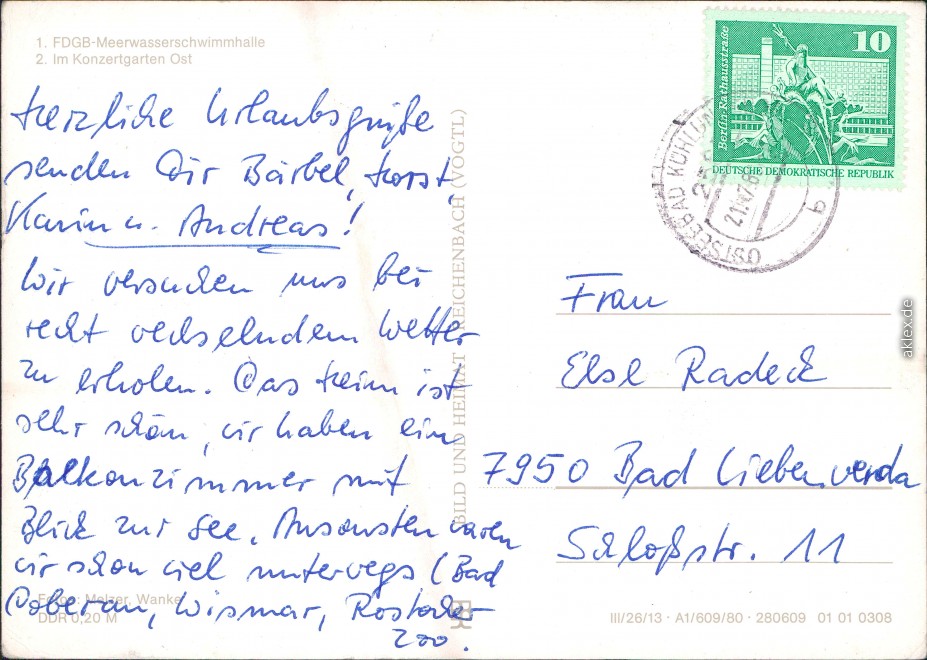 1. FDGB-Meerwasserschwimmhalle
2. Im Konzertgarten Ost
Herzliche Urlaubsgrüße
senden Dir Bärbel, Horst,
Karin u. Andreas!
Wir versuchen uns bei
recht wechselndem Wetter
zu erholen. Das Heim ist
sehr schön, wir haben ein
Balkonzimmer mit
Blick zur See. Ansonsten waren
wir schon viel unterwegs (Bad
Doberan, Wismar, Rostocker
Zoo.
Fotos: Melzer, Wanke
DDR 0,20 M
BILD UND HEIMAT REICHENBACH (VOGTL)
Berlin-Rathausstraße
10
DEUTSCHE DEMOKRATISCHE REPUBLIK
OSTSEEBAD KÜHLUN
b
Frau
Else Radeck
7950 Bad Liebenwerda
Schloßstr. 11
III/26/13 · A1/609/80 · 280609 01 01 0308
aklex.de